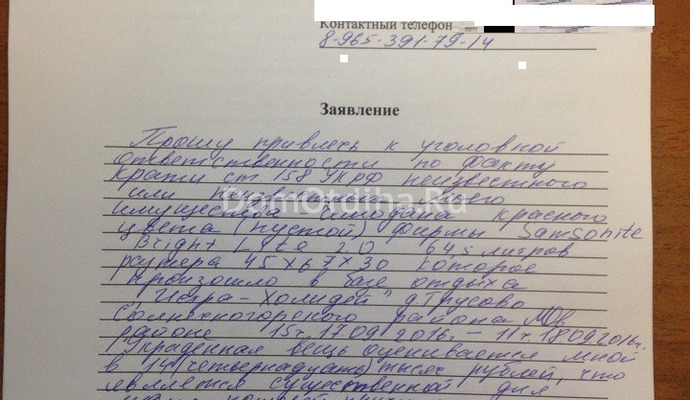 Контактный телефон
8-965-391-79-14
Заявление
Прошу привлечь к уголовной
ответственности по факту
кражи ст 158 УК РФ неизвестного
или неизвестных моего
имущества - чемодана красного
цвета (пустой) фирмы Samsonite
Bright Lite 2.0 64,5 литров
размера 45х67х30 которое
произошло в базе отдыха
"Истра-Холидей" д Трусово
Солнечногорского района МО в
районе 15ч 17.09.2016г. - 11ч 18.09.2016г.
Украденная вещь оценивается мной
в 14 (четырнадцать) тысяч рублей, что
является существенной для
DomOtdiha.Ru